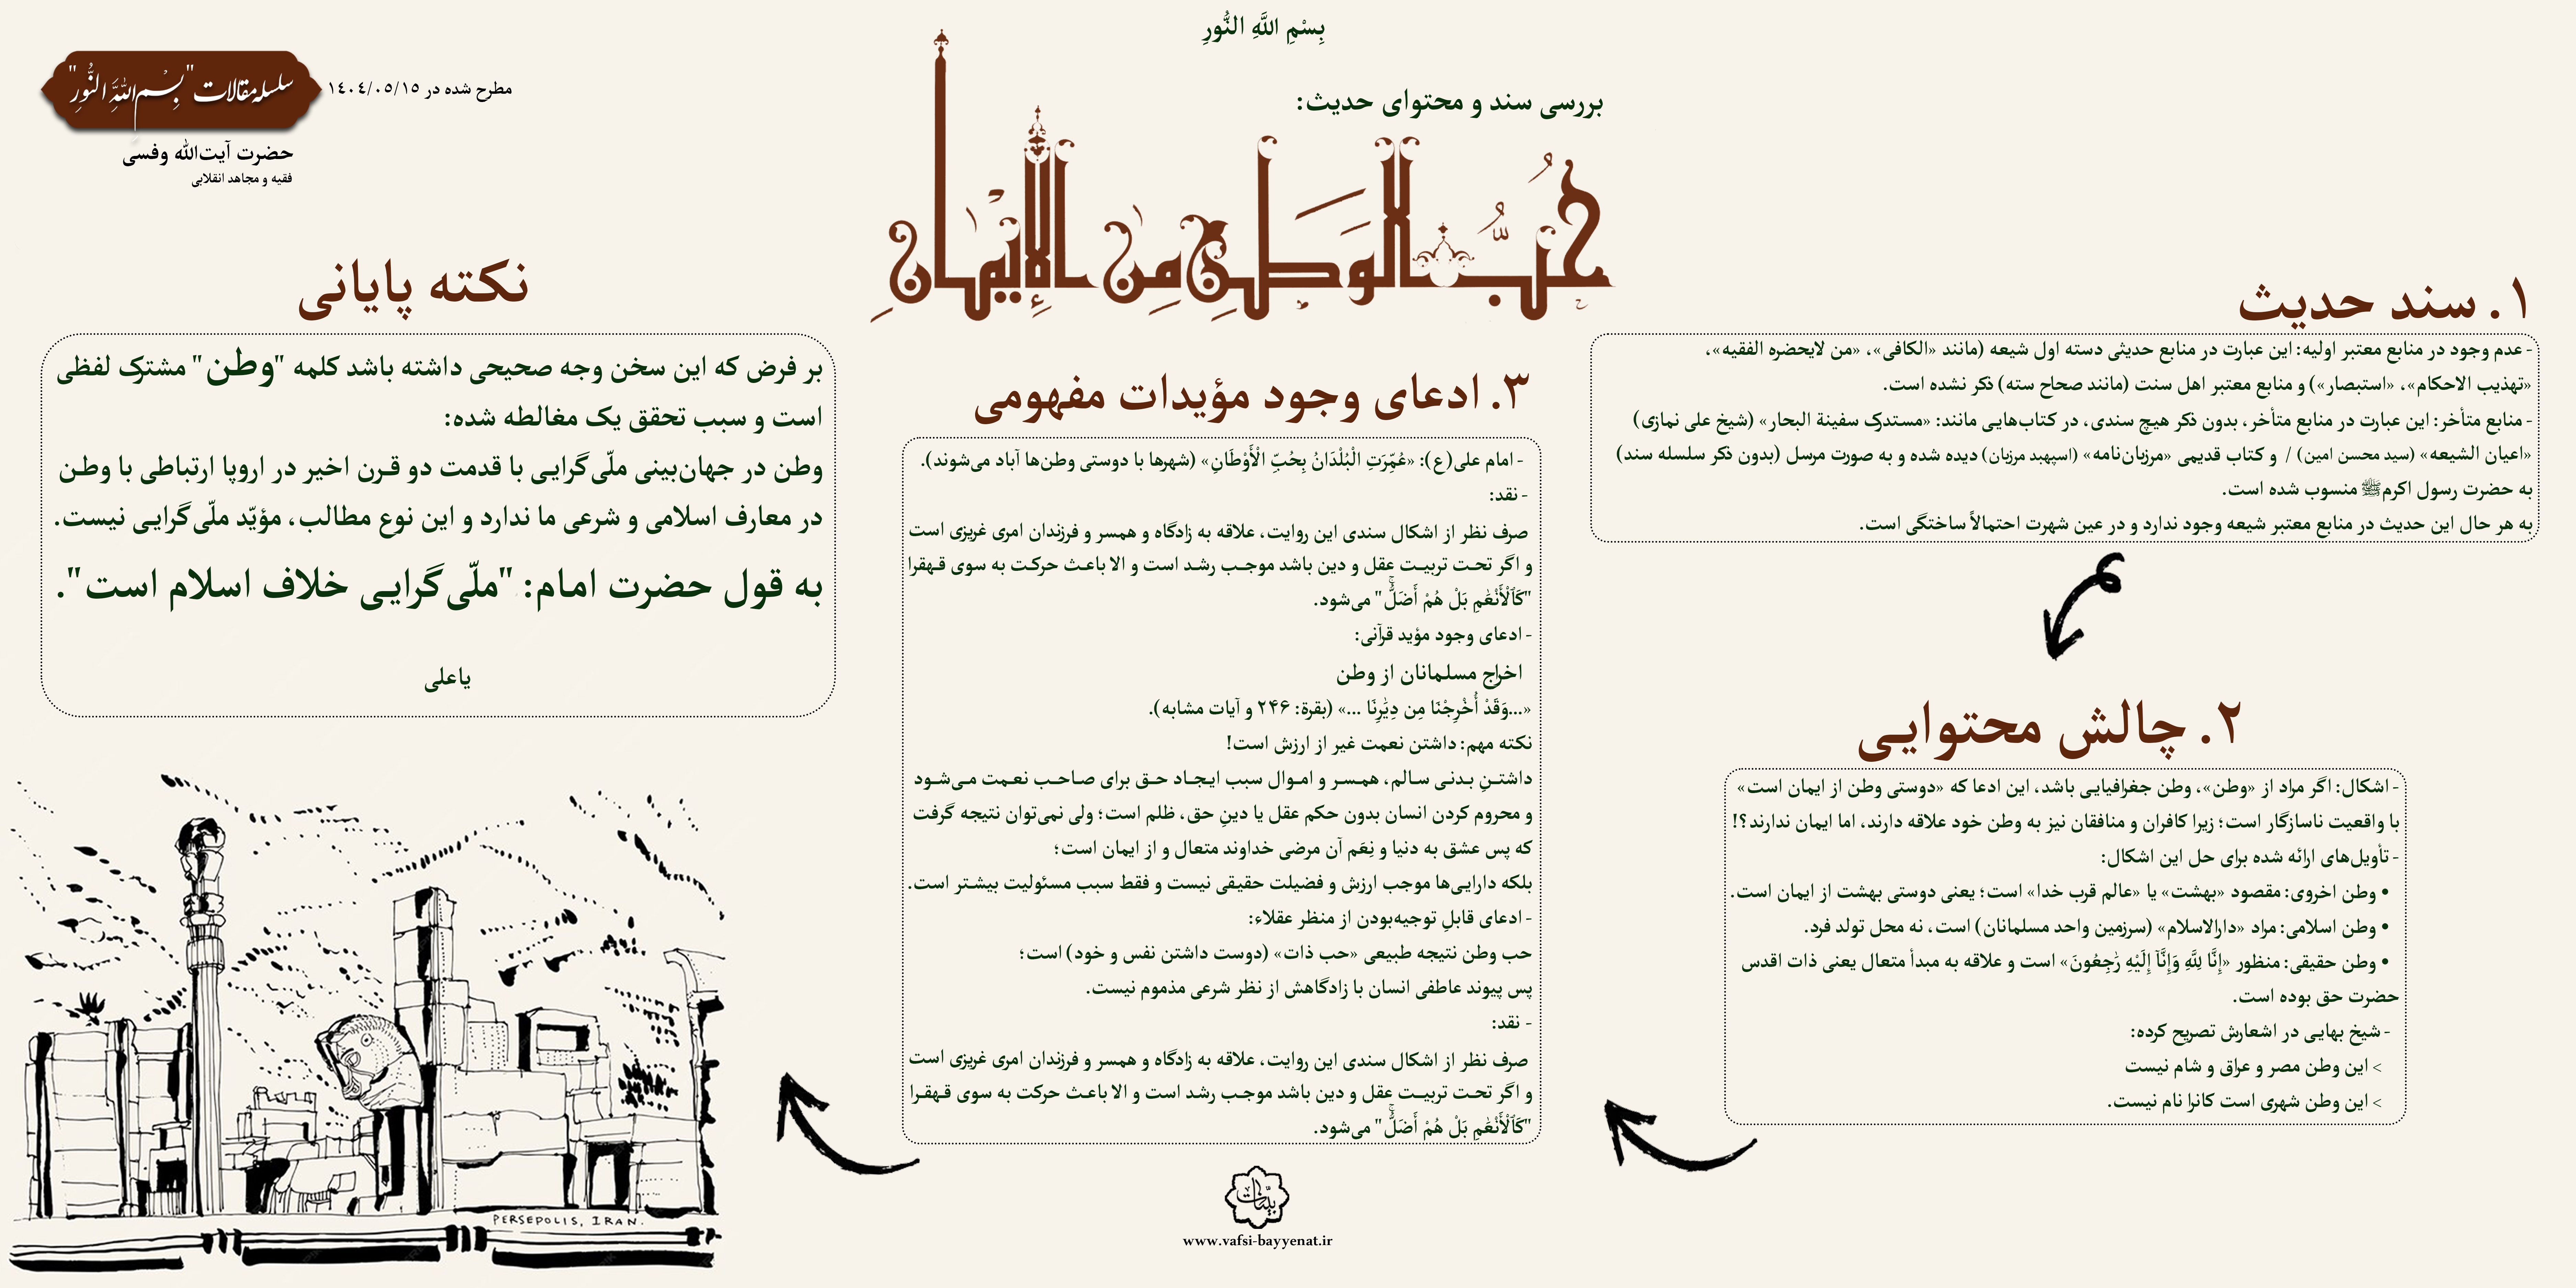 بِسْمِ اللَّهِ النُّورِ
بررسی سند و محتوای حدیث:
حُبُّ الوَطَنِ مِنَ الإِيمَانِ
سلسله مقالات "بِسْمِ اللَّهِ النُّورِ"
مطرح شده در ۱٤۰٤/۰٥/۱٥
حضرت آیت‌الله وفسی
فقیه و مجاهد انقلابی
۱. سند حدیث
- عدم وجود در منابع معتبر اولیه: این عبارت در منابع حدیثی دسته اول شیعه (مانند «الکافی»، «من لایحضره الفقیه»،
«تهذیب الاحکام»، «استبصار») و منابع معتبر اهل سنت (مانند صحاح سته) ذکر نشده است.
- منابع متأخر: این عبارت در منابع متأخر، بدون ذکر هیچ سندی، در کتاب‌هایی مانند: «مستدرک سفینة البحار» (شیخ علی نمازی)
«اعیان الشیعه» (سید محسن امین) / و کتاب قدیمی «مرزبان‌نامه» (اسپهبد مرزبان) دیده شده و به صورت مرسل (بدون ذکر سلسله سند)
به حضرت رسول اکرمﷺ منسوب شده است.
به هر حال این حدیث در منابع معتبر شیعه وجود ندارد و در عین شهرت احتمالاً ساختگی است.
۲. چالش محتوایی
- اشکال: اگر مراد از «وطن»، وطن جغرافیایی باشد، این ادعا که «دوستی وطن از ایمان است»
با واقعیت ناسازگار است؛ زیرا کافران و منافقان نیز به وطن خود علاقه دارند، اما ایمان ندارند؟!
- تأویل‌های ارائه شده برای حل این اشکال:
• وطن اخروی: مقصود «بهشت» یا «عالم قرب خدا» است؛ یعنی دوستی بهشت از ایمان است.
• وطن اسلامی: مراد «دارالاسلام» (سرزمین واحد مسلمانان) است، نه محل تولد فرد.
• وطن حقیقی: منظور «إِنَّا لِلَّهِ وَإِنَّآ إِلَيْهِ رَٰجِعُونَ» است و علاقه به مبدأ متعال یعنی ذات اقدس
حضرت حق بوده است.
- شیخ بهایی در اشعارش تصریح کرده:
> این وطن مصر و عراق و شام نیست
> این وطن شهری است کانرا نام نیست.
۳. ادعای وجود مؤیدات مفهومی
- امام علی(ع): «عُمِّرَتِ الْبُلْدَانُ بِحُبِّ الْأَوْطَانِ» (شهرها با دوستی وطن‌ها آباد می‌شوند).
- نقد:
صرف نظر از اشکال سندی این روایت، علاقه به زادگاه و همسر و فرزندان امری غریزی است
و اگر تحت تربیت عقل و دین باشد موجب رشد است و الا باعث حرکت به سوی قهقرا
"كَٱلْأَنْعَٰمِ بَلْ هُمْ أَضَلُّۚ" می‌شود.
- ادعای وجود مؤید قرآنی:
اخراج مسلمانان از وطن
«...وَقَدْ أُخْرِجْنَا مِن دِيَٰرِنَا ...» (بقرة: ۲۴۶ و آیات مشابه).
نکته مهم: داشتن نعمت غیر از ارزش است!
داشتنِ بدنی سالم، همسر و اموال سبب ایجاد حق برای صاحب نعمت می‌شود
و محروم کردن انسان بدون حکم عقل یا دینِ حق، ظلم است؛ ولی نمی‌توان نتیجه گرفت
که پس عشق به دنیا و نِعَم آن مرضی خداوند متعال و از ایمان است؛
بلکه دارایی‌ها موجب ارزش و فضیلت حقیقی نیست و فقط سبب مسئولیت بیشتر است.
- ادعای قابلِ توجیه‌بودن از منظر عقلاء:
حب وطن نتیجه طبیعی «حب ذات» (دوست داشتن نفس و خود) است؛
پس پیوند عاطفی انسان با زادگاهش از نظر شرعی مذموم نیست.
- نقد:
صرف نظر از اشکال سندی این روایت، علاقه به زادگاه و همسر و فرزندان امری غریزی است
و اگر تحت تربیت عقل و دین باشد موجب رشد است و الا باعث حرکت به سوی قهقرا
"كَٱلْأَنْعَٰمِ بَلْ هُمْ أَضَلُّۚ" می‌شود.
نکته پایانی
بر فرض که این سخن وجه صحیحی داشته باشد کلمه "وطن" مشترک لفظی
است و سبب تحقق یک مغالطه شده:
وطن در جهان‌بینی ملّی‌گرایی با قدمت دو قرن اخیر در اروپا ارتباطی با وطن
در معارف اسلامی و شرعی ما ندارد و این نوع مطالب، مؤیّد ملّی‌گرایی نیست.
به قول حضرت امام: "ملّی‌گرایی خلاف اسلام است".
یاعلی
PERSEPOLIS, IRAN.
بیّنات
www.vafsi-bayyenat.ir